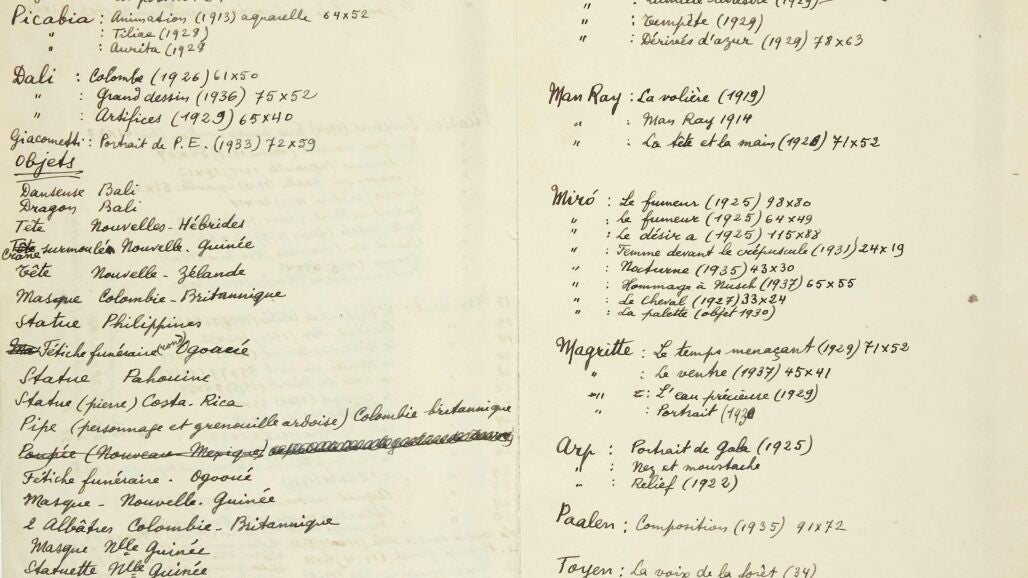 Picabia : Animation (1913) aquarelle 64x52
" : Tiliae (1929)
" : Aurita (1929
Dali : Colombe (1926) 61x50
" : Grand dessin (1936) 75x52
" : Artifices (1929) 65x40
Giacometti : Portrait de P.E. (1933) 72x59
Objets
Danseuse Bali
Dragon Bali
Tête Nouvelles-Hébrides
Crâne surmoulée Nouvelle-Guinée
Tête Nouvelle-Zélande
Masque Colombie-Britannique
Statue Philippines
Fétiche funéraire (rond) Ogooué
Statue Pahouine
Statue (pierre) Costa-Rica
Pipe (personnage et grenouille ardoise) Colombie britannique
Poupée (Nouveau-Mexique)
Fétiche funéraire. Ogooué
Masque - Nouvelle-Guinée
2 Albâtres Colombie-Britannique
Masque Nlle Guinée
Statuette Nlle Guinée
(1929)
" : Tempête (1929)
" : Dérivés d'azur (1929) 78x63
Man Ray : La volière (1919)
" : Man Ray 1914
" : La tête et la main (1926) 71x52
Miró : Le fumeur (1925) 98x80
" : Le fumeur (1925) 64x49
" : Le désir a (1925) 115x88
" : Femme devant le crépuscule (1931) 24x19
" : Nocturne (1935) 43x30
" : Hommage à Nusch (1937) 65x55
" : Le Cheval (1927) 33x24
" : La palette (objet 1930)
Magritte : Le temps menaçant (1929) 71x52
" : Le ventre (1937) 45x41
" : L'eau précieuse (1929)
" : Portrait (1930
Arp : Portrait de Gala (1925)
" : Nez et moustache
" : Relief (1922)
Paalen : Composition (1935) 91x72
Toyen : La voix de la forêt (34)